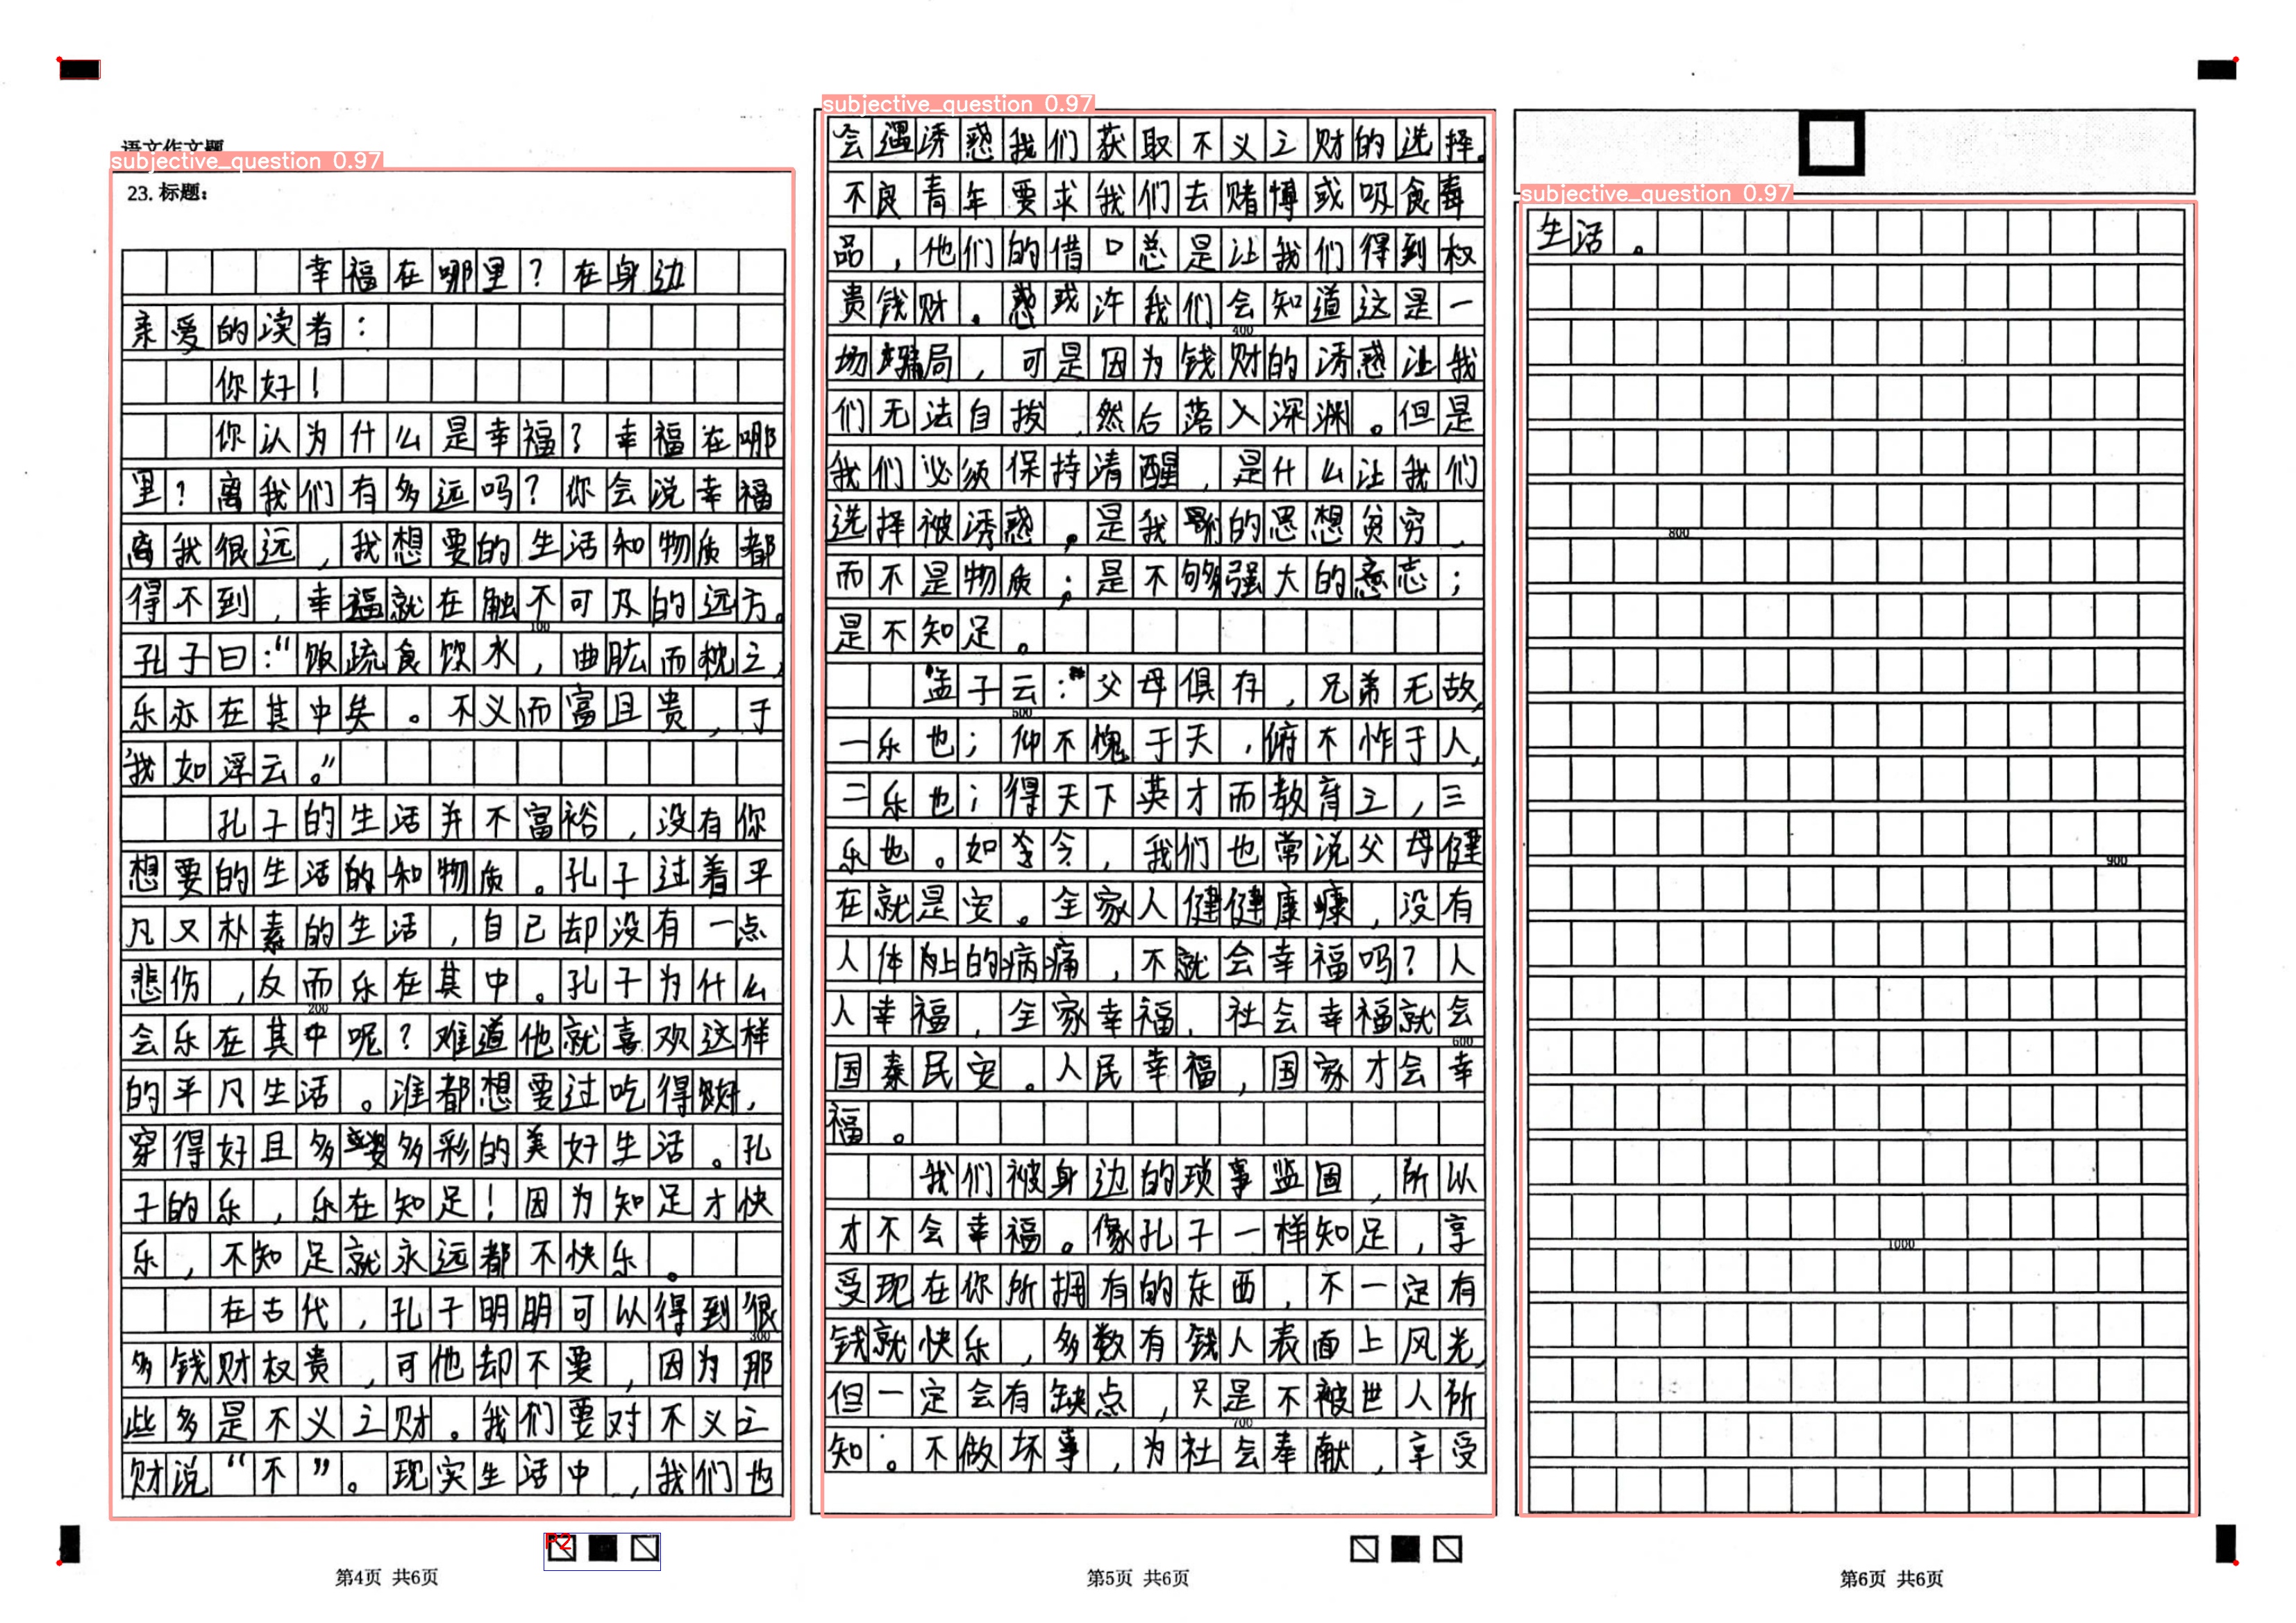 语文作文题
subjective_question 0.97
23. 标题：
幸福在哪里？在身边
亲爱的读者：
你好！
你认为什么是幸福？幸福在哪
里？离我们有多远吗？你会说幸福
离我很远，我想要的生活和物质都
得不到，幸福就在触不可及的远方。
100
孔子曰：“饭疏食饮水，曲肱而枕之，
乐亦在其中矣。不义而富且贵，于
我如浮云。”
孔子的生活并不富裕，没有你
想要的生活的和物质。孔子过着平
凡又朴素的生活，自己却没有一点
悲伤，反而乐在其中。孔子为什么
200
会乐在其中呢？难道他就喜欢这样
的平凡生活。谁都想要过吃得好，
穿得好且多姿多彩的美好生活。孔
子的乐，乐在知足！因为知足才快
乐，不知足就永远都不快乐。
在古代，孔子明明可以得到很
300
多钱财权贵，可他却不要，因为那
些多是不义之财。我们要对不义之
财说“不”。现实生活中，我们也
P2
第4页 共6页
subjective_question 0.97
会遇诱惑我们获取不义之财的选择。
不良青年要求我们去赌博或吸食毒
品，他们的借口总是让我们得到权
贵钱财。或许我们会知道这是一
400
场骗局，可是因为钱财的诱惑让我
们无法自拔，然后落入深渊。但是
我们必须保持清醒，是什么让我们
选择被诱惑。是我们的思想贫穷，
而不是物质；是不够强大的意志；
是不知足。
孟子云：“父母俱存，兄弟无故，
500
一乐也；仰不愧于天，俯不怍于人，
二乐也；得天下英才而教育之，三
乐也。如今，我们也常说父母健
在就是安。全家人健健康康，没有
人体上的病痛，不就会幸福吗？人
人幸福，全家幸福，社会幸福就会
600
国泰民安。人民幸福，国家才会幸
福。
我们被身边的琐事监固，所以
才不会幸福。像孔子一样知足，享
受现在你所拥有的东西，不一定有
钱就快乐，多数有钱人表面上风光，
但一定会有缺点，只是不被世人所
700
知。不做坏事，为社会奉献，享受
第5页 共6页
subjective_question 0.97
生活。
800
900
1000
第6页 共6页